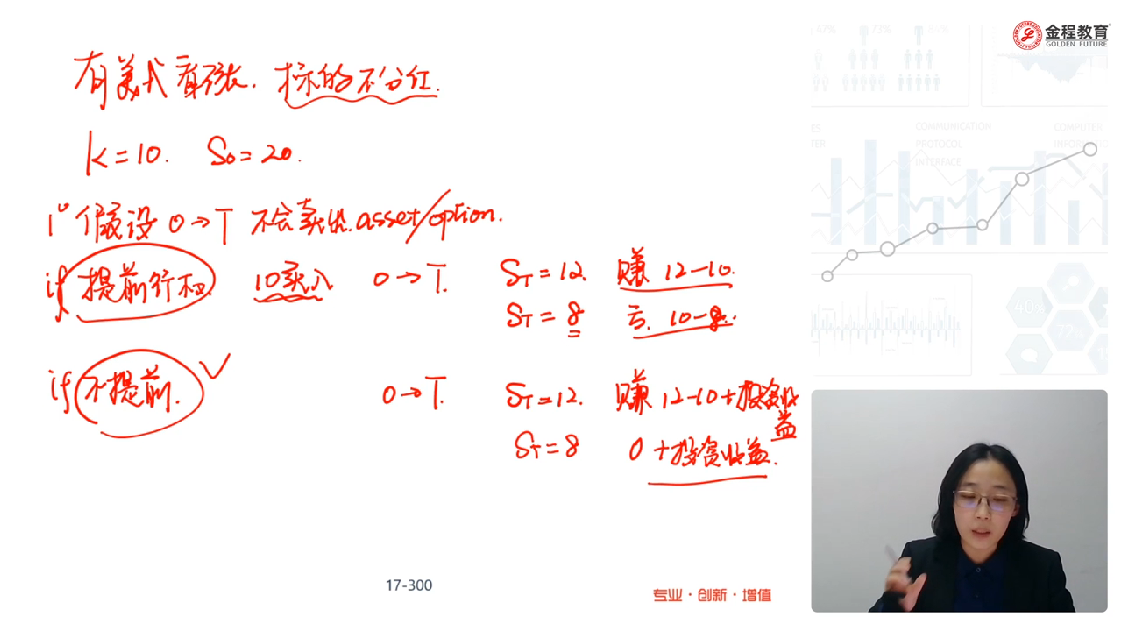 金程教育
GOLDEN FUTURE
有美式看涨. 标的不分红.
K=10. S₀=20.
1° 假设 0→T 不会卖出 asset/option.
if 提前行权 10买入 0→T. S_T=12. 赚 12-10.
S_T=8 亏. 10-8.
if 不提前. ✓ 0→T. S_T=12. 赚 12-10+投资收益
S_T=8 0+投资收益.
17-300
专业·创新·增值
COMMUNICATION
PROTOCOL
INTERFACE